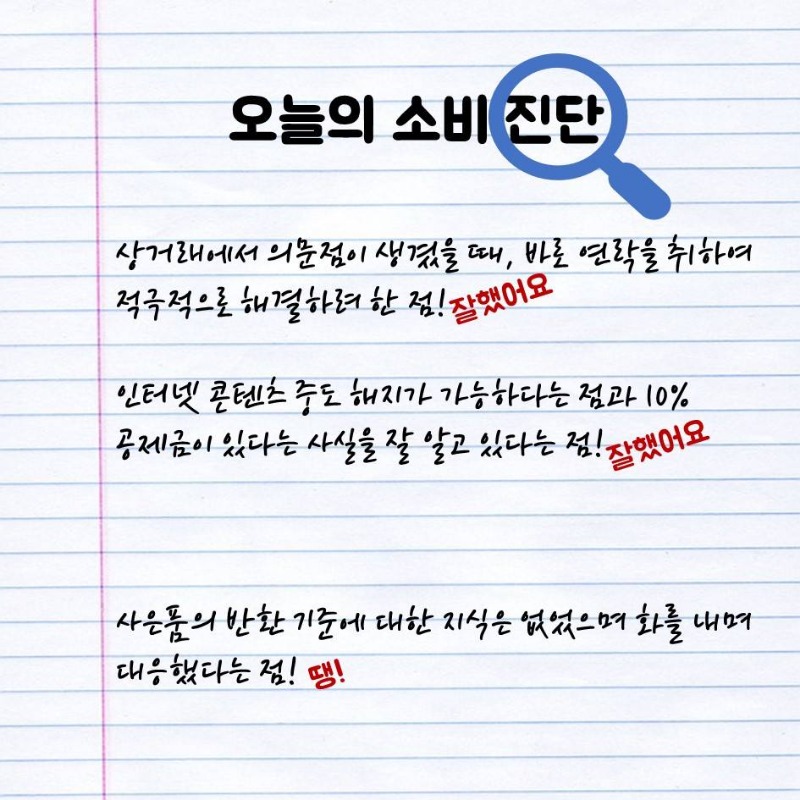 오늘의 소비 진단
상거래에서 의문점이 생겼을 때, 바로 연락을 취하여
적극적으로 해결하려 한 점! 잘했어요
인터넷 콘텐츠 중도 해지가 가능하다는 점과 10%
공제금이 있다는 사실을 잘 알고 있다는 점! 잘했어요
사은품의 반환 기준에 대한 지식은 없었으며 화를 내며
대응했다는 점! 땡!